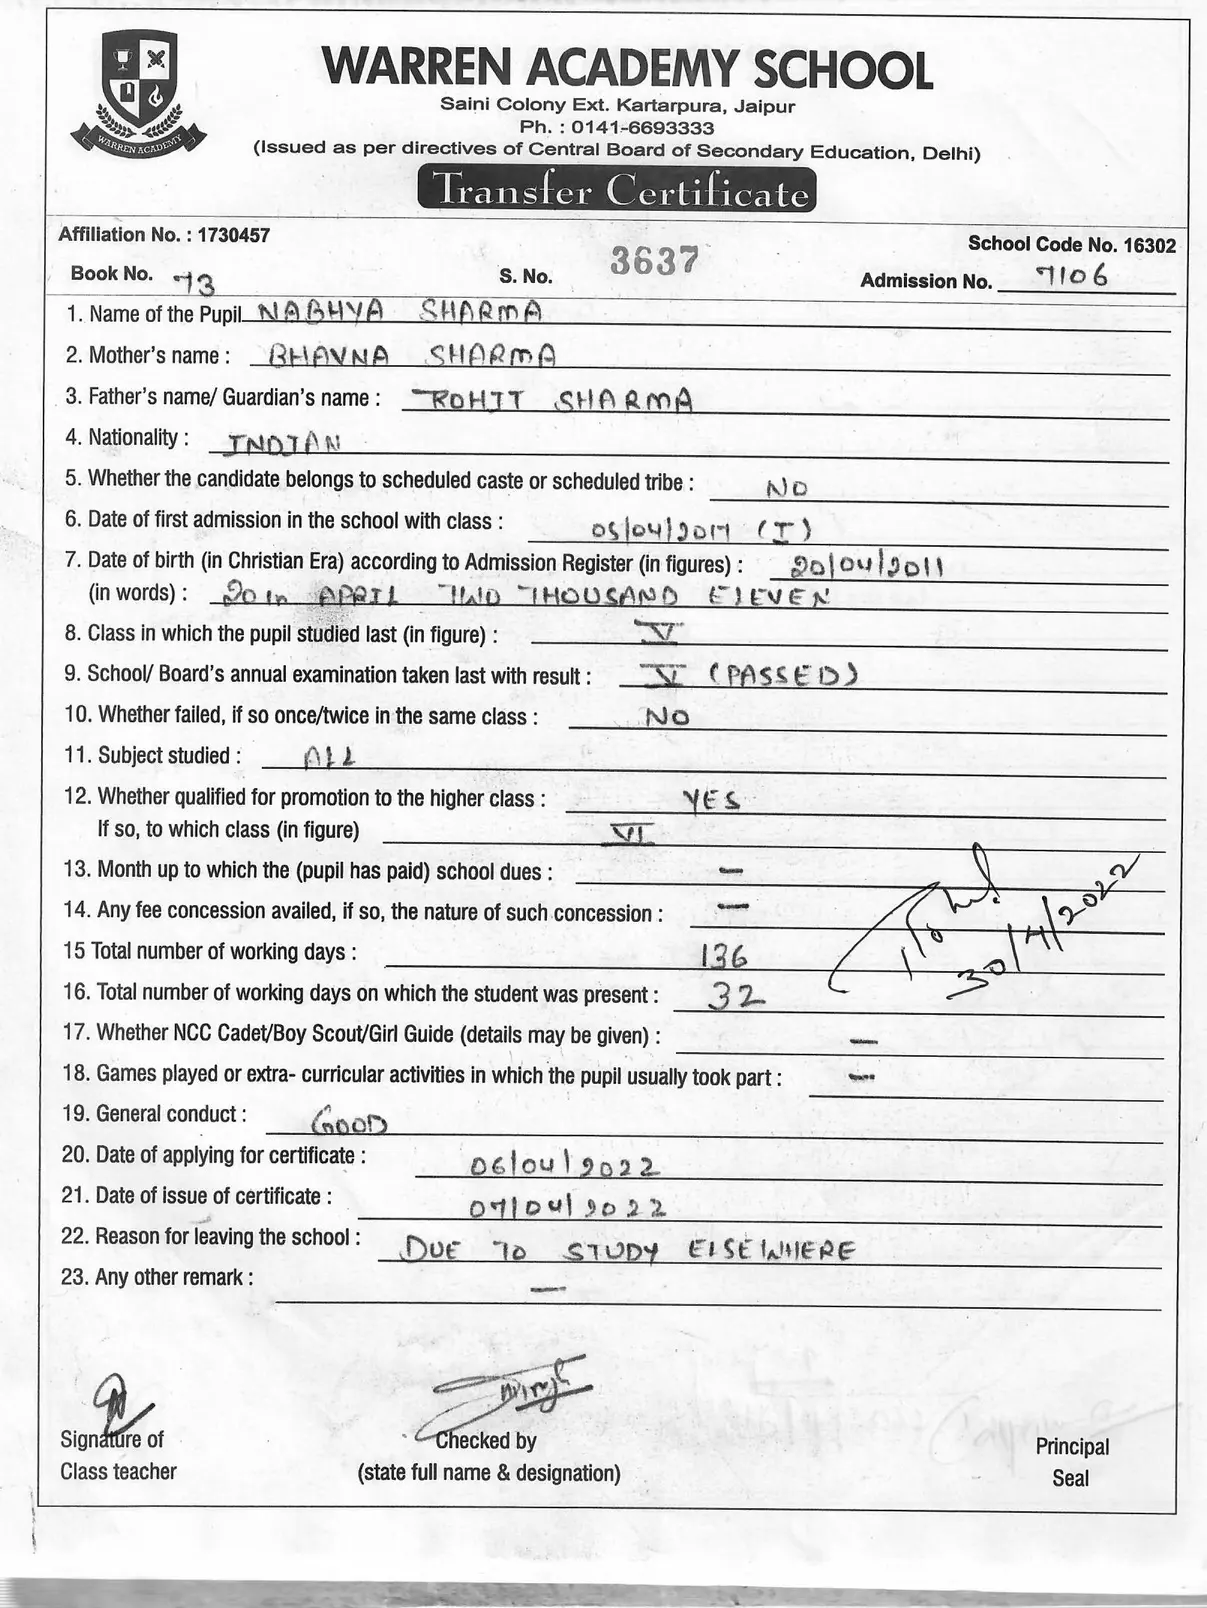 WARREN ACADEMY
WARREN ACADEMY SCHOOL
Saini Colony Ext. Kartarpura, Jaipur
Ph. : 0141-6693333
(Issued as per directives of Central Board of Secondary Education, Delhi)
Transfer Certificate
Affiliation No. : 1730457 School Code No. 16302
Book No. 73 S. No. 3637 Admission No. 7106
1. Name of the Pupil NABHYA SHARMA
2. Mother's name : BHAVNA SHARMA
3. Father's name/ Guardian's name : ROHIT SHARMA
4. Nationality : INDIAN
5. Whether the candidate belongs to scheduled caste or scheduled tribe : NO
6. Date of first admission in the school with class : 05/04/2017 (I)
7. Date of birth (in Christian Era) according to Admission Register (in figures) : 20/04/2011
(in words) : 20th APRIL TWO THOUSAND ELEVEN
8. Class in which the pupil studied last (in figure) : V
9. School/ Board's annual examination taken last with result : V (PASSED)
10. Whether failed, if so once/twice in the same class : NO
11. Subject studied : ALL
12. Whether qualified for promotion to the higher class : YES
If so, to which class (in figure) VI
13. Month up to which the (pupil has paid) school dues : —
14. Any fee concession availed, if so, the nature of such concession : —
15 Total number of working days : 136
30/4/2022
16. Total number of working days on which the student was present : 32
17. Whether NCC Cadet/Boy Scout/Girl Guide (details may be given) : —
18. Games played or extra- curricular activities in which the pupil usually took part : —
19. General conduct : GOOD
20. Date of applying for certificate : 06/04/2022
21. Date of issue of certificate : 07/04/2022
22. Reason for leaving the school : DUE TO STUDY ELSEWHERE
23. Any other remark : —
Signature of Checked by Principal
Class teacher (state full name & designation) Seal